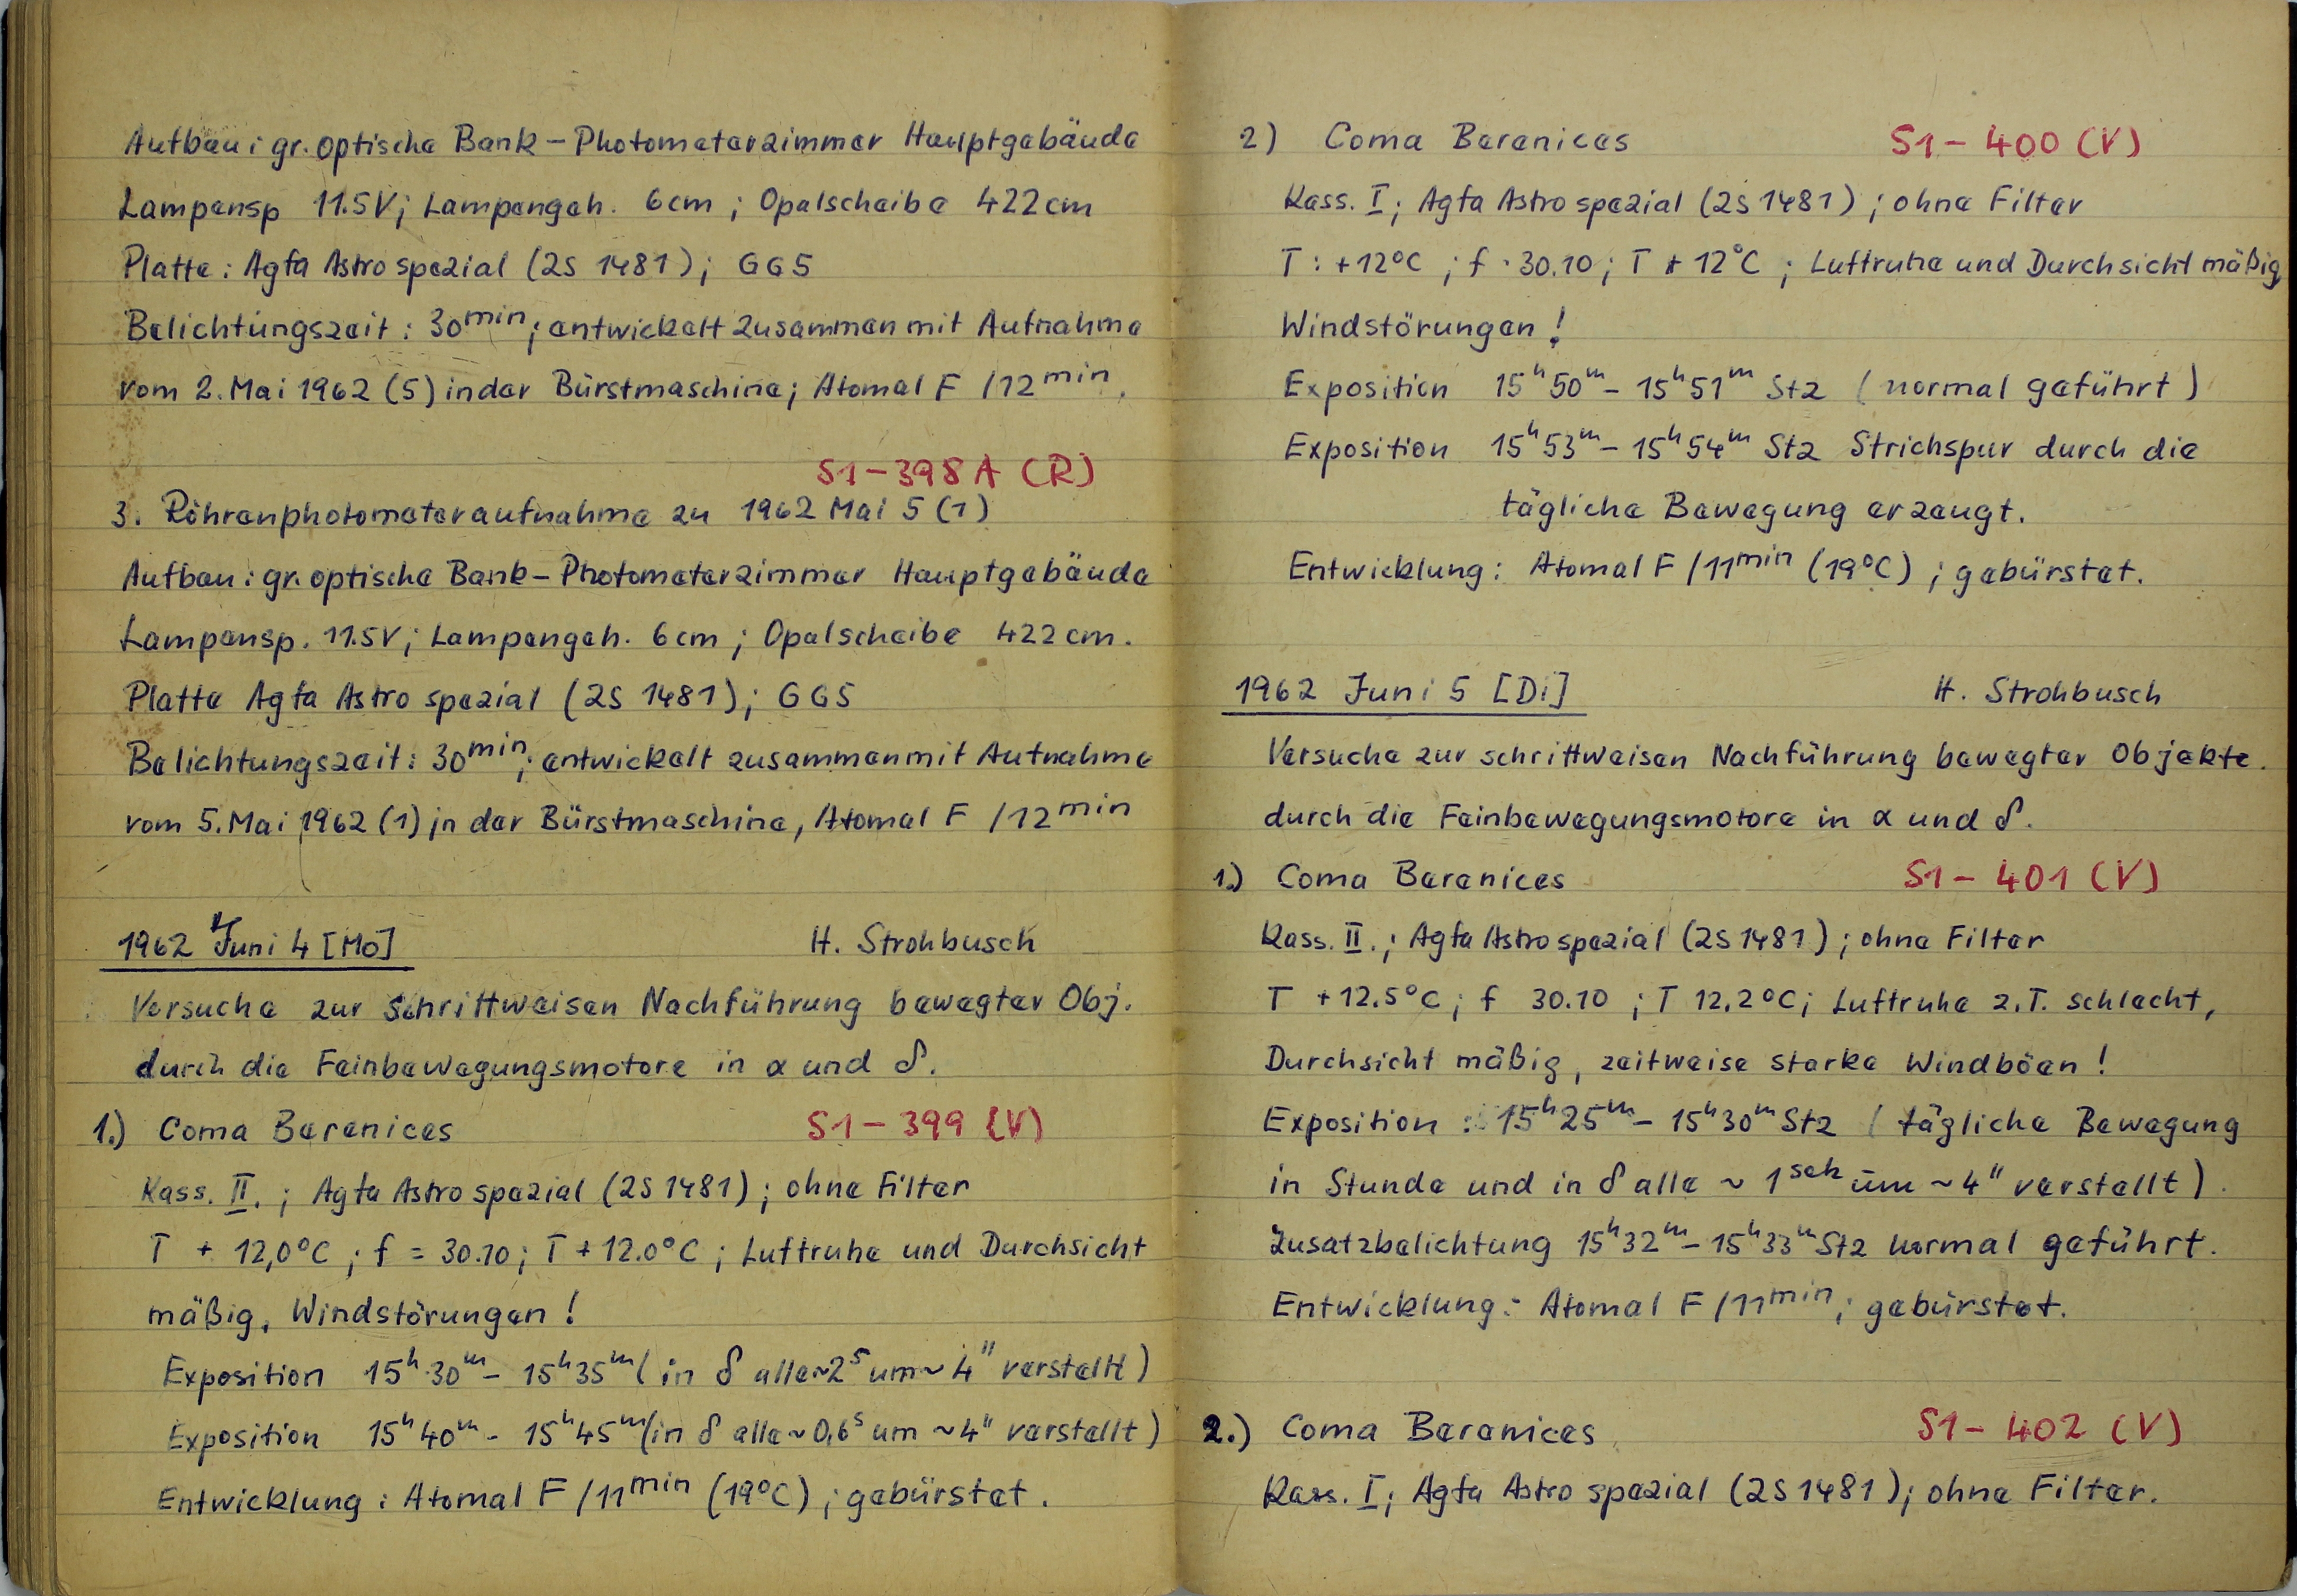 Aufbau: gr. optische Bank – Photometerzimmer Hauptgebäude
Lampensp 11.5V; Lampengeh. 6cm; Opalscheibe 422cm
Platte: Agfa Astro spezial (2S 1481); GG5
Belichtungszeit: 30min; entwickelt zusammen mit Aufnahme
vom 2. Mai 1962 (5) in der Bürstmaschine; Atomal F /12min.
S1–398A (R)
3. Röhrenphotometeraufnahme zu 1962 Mai 5 (1)
Aufbau: gr. optische Bank – Photometerzimmer Hauptgebäude
Lampensp. 11.5V; Lampengeh. 6cm; Opalscheibe 422cm.
Platte Agfa Astro spezial (2S 1481); GG5
Belichtungszeit: 30min; entwickelt zusammen mit Aufnahme
vom 5. Mai 1962 (1) in der Bürstmaschine, Atomal F /12min
1962 Juni 4 [Mo] H. Strohbusch
Versuche zur schrittweisen Nachführung bewegter Obj.
durch die Feinbewegungsmotore in α und δ.
1.) Coma Berenices S1–399 (V)
Kass. II.; Agfa Astro spezial (2S 1481); ohne Filter
T + 12,0°C; f = 30.10; T + 12.0°C; Luftruhe und Durchsicht
mäßig, Windstörungen!
Exposition 15h30m – 15h35m (in δ alle ~2s um ~4" verstellt)
Exposition 15h40m – 15h45m (in δ alle ~0,6s um ~4" verstellt)
Entwicklung: Atomal F /11min (19°C); gebürstet.
2) Coma Berenices S1–400 (V)
Kass. I; Agfa Astro spezial (2S 1481); ohne Filter
T: +12°C; f · 30.10; T + 12°C; Luftruhe und Durchsicht mäßig
Windstörungen!
Exposition 15h50m – 15h51m Stz (normal geführt)
Exposition 15h53m – 15h54m Stz Strichspur durch die
tägliche Bewegung erzeugt.
Entwicklung: Atomal F /11min (19°C); gebürstet.
1962 Juni 5 [Di] H. Strohbusch
Versuche zur schrittweisen Nachführung bewegter Objekte.
durch die Feinbewegungsmotore in α und δ.
1.) Coma Berenices S1–401 (V)
Kass. II.; Agfa Astro spezial (2S 1481); ohne Filter
T +12.5°C; f 30.10; T 12.2°C; Luftruhe z.T. schlecht,
Durchsicht mäßig, zeitweise starke Windböen!
Exposition: 15h25m – 15h30m Stz (tägliche Bewegung
in Stunde und in δ alle ~ 1sek um ~4" verstellt).
Zusatzbelichtung 15h32m – 15h33m Stz normal geführt.
Entwicklung: Atomal F /11min; gebürstet.
2.) Coma Berenices S1–402 (V)
Kass. I; Agfa Astro spezial (2S 1481); ohne Filter.